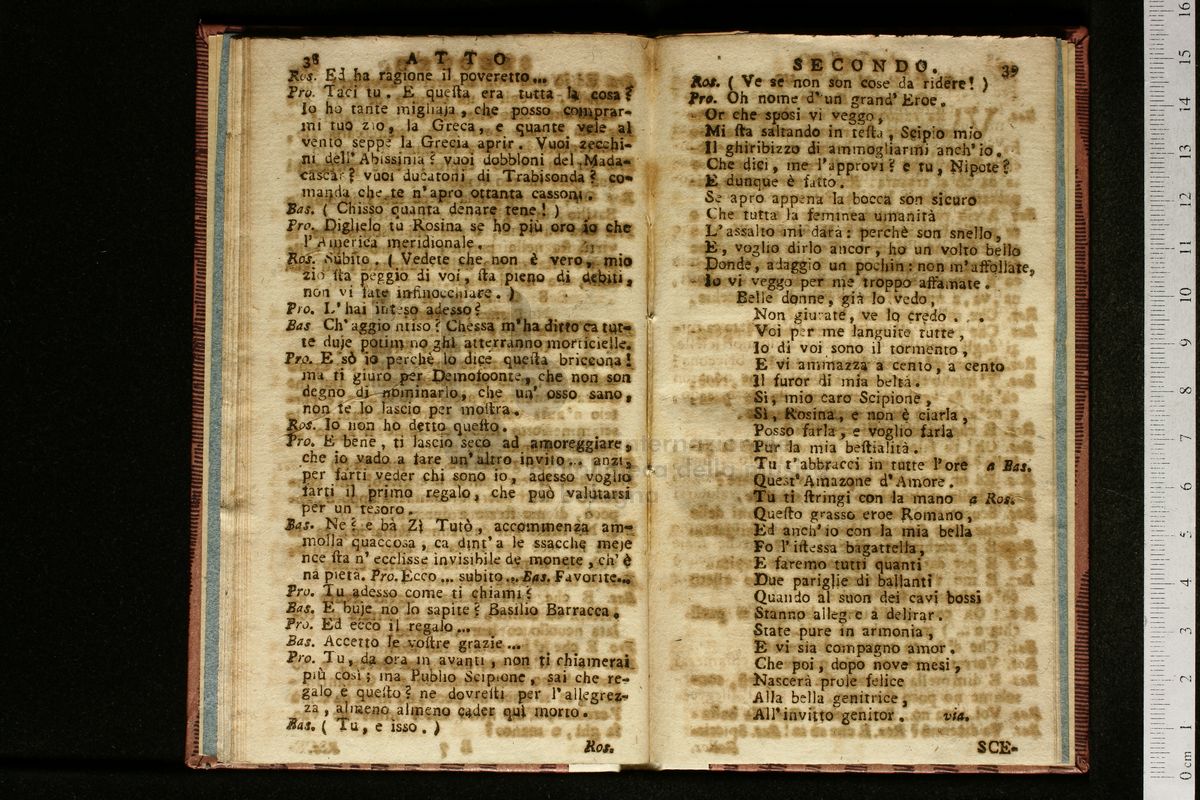 38 ATTO
Ros. Ed ha ragione il poveretto...
Pro. Taci tu. E questa era tutta la cosa?
Io ho tante migliaja, che posso comprar-
mi tuo zio, la Greca, e quante vele al
vento seppe la Grecia aprir. Vuoi zecchi-
ni dell'Abissinia? vuoi dobbloni del Mada-
cascar? vuoi ducatoni di Trabisonda? co-
manda che te n'apro ottanta cassoni.
Bas. ( Chisso quanta denare tene! )
Pro. Diglielo tu Rosina se ho più oro io che
l'America meridionale.
Ros. Subito. ( Vedete che non è vero, mio
zio sta peggio di voi, sta pieno di debiti,
non vi fate infinocchiare. )
Pro. L'hai inteso adesso?
Bas Ch'aggio ntiso? Chessa m'ha ditto ca tut-
te duje potim no ghì atterranno morticielle.
Pro. E sò io perchè lo dice questa briccona!
ma ti giuro per Demofoonte, che non son
degno di nominarlo, che un' osso sano,
non te lo lascio per mostra.
Ros. Io non ho detto questo.
Pro. E bene, ti lascio seco ad amoreggiare,
che io vado a fare un'altro invito... anzi,
per farti veder chi sono io, adesso voglio
farti il primo regalo, che può valutarsi
per un tesoro.
Bas. Ne? e bà Zì Tutò, accommenza am-
molla quaccosa, ca dint'a le ssacche meje
nce sta n' ecclisse invisibile de monete, ch'è
na pietà. Pro. Ecco... subito... Bas. Favorite...
Pro. Tu adesso come ti chiami?
Bas. E buje no lo sapite? Basilio Barracca.
Pro. Ed ecco il regalo...
Bas. Accetto le vostre grazie...
Pro. Tu, da ora in avanti, non ti chiamerai
più così; ma Publio Scipione, sai che re-
galo è questo? ne dovresti per l'allegrez-
za, almeno almeno cader quì morto.
Bas. ( Tu, e isso. )
Ros.
SECONDO. 39
Ros. ( Ve se non son cose da ridere! )
Pro. Oh nome d'un grand' Eroe.
Or che sposi vi veggo,
Mi sta saltando in testa, Scipio mio
Il ghiribizzo di ammogliarmi anch'io.
Che dici, me l'approvi? e tu, Nipote?
E dunque è fatto.
Se apro appena la bocca son sicuro
Che tutta la feminea umanità
L'assalto mi darà: perchè son snello,
E, voglio dirlo ancor, ho un volto bello
Donde, adaggio un pochin: non m'affollate,
Io vi veggo per me troppo affamate.
Belle donne, già lo vedo,
Non giurate, ve lo credo...
Voi per me languite tutte,
Io di voi sono il tormento,
E vi ammazza a cento, a cento
Il furor di mia beltà.
Sì, mio caro Scipione,
Sì, Rosina, e non è ciarla,
Posso farla, e voglio farla
Pur la mia bestialità.
Tu t'abbracci in tutte l'ore a Bas.
Quest'Amazone d'Amore.
Tu ti stringi con la mano a Ros.
Questo grasso eroe Romano,
Ed anch'io con la mia bella
Fo l'istessa bagattella,
E faremo tutti quanti
Due pariglie di ballanti
Quando al suon dei cavi bossi
Stanno allegre a delirar.
State pure in armonia,
E vi sia compagno amor.
Che poi, dopo nove mesi,
Nascerà prole felice
Alla bella genitrice,
All'invitto genitor. via.
SCE-